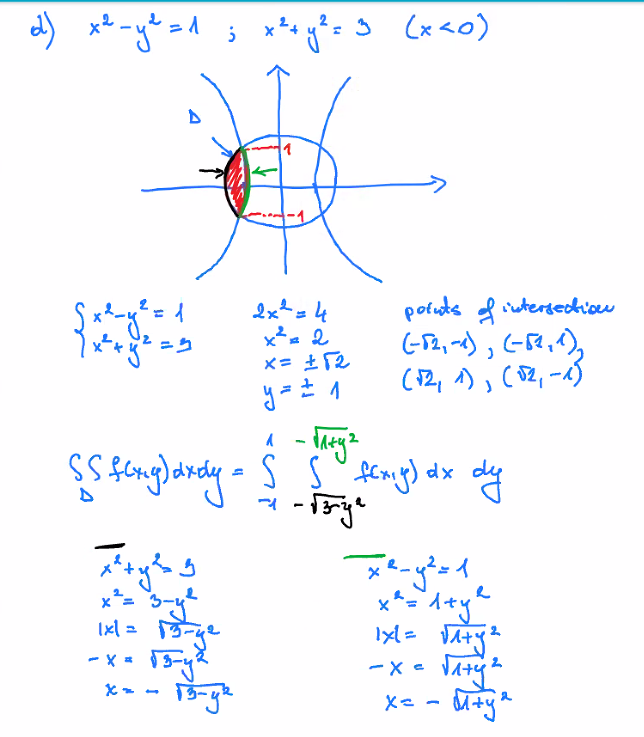 d) x² - y² = 1 ; x² + y² = 3 (x < 0)
D
1
-1
{ x² - y² = 1
x² + y² = 3
2x² = 4
x² = 2
x = ±√2
y = ± 1
points of intersection
(-√2, -1), (-√2, 1),
(√2, 1), (√2, -1)
∫∫_D f(x,y) dx dy = ∫_{-1}^{1} ∫_{-√(3-y²)}^{-√(1+y²)} f(x,y) dx dy
x² + y² = 3
x² = 3 - y²
|x| = √(3-y²)
-x = √(3-y²)
x = - √(3-y²)
x² - y² = 1
x² = 1 + y²
|x| = √(1+y²)
-x = √(1+y²)
x = - √(1+y²)